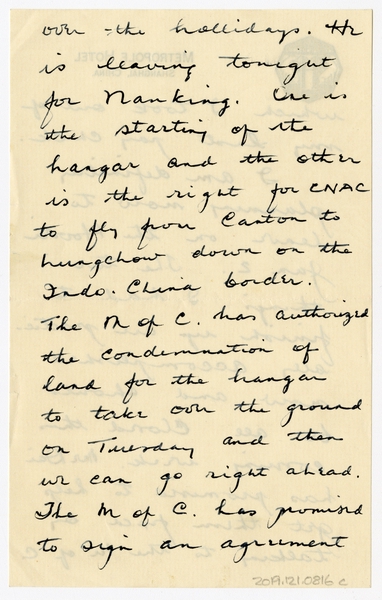 over the hollidays. He
is leaving tonight
for Nanking. One is
the starting of the
hangar and the other
is the right for CNAC
to fly from Canton to
hungchow down on the
Indo. China border.
The M of C. has authorized
the condemnation of
land for the hangar
to take over the ground
on Tuesday and then
we can go right ahead.
The M of C. has promised
to sign an agreement
2019.121.0816 c